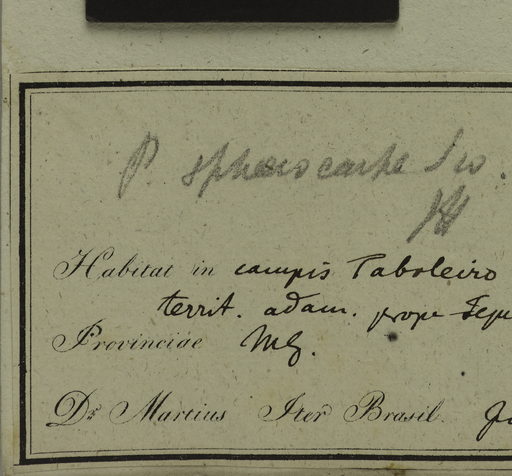 P sphaerocarpa Sw.
Habitat in campis Taboleiro
territ. adam. prope Teju
Provinciae MG.
Dr Martius Iter Brasil. Ju